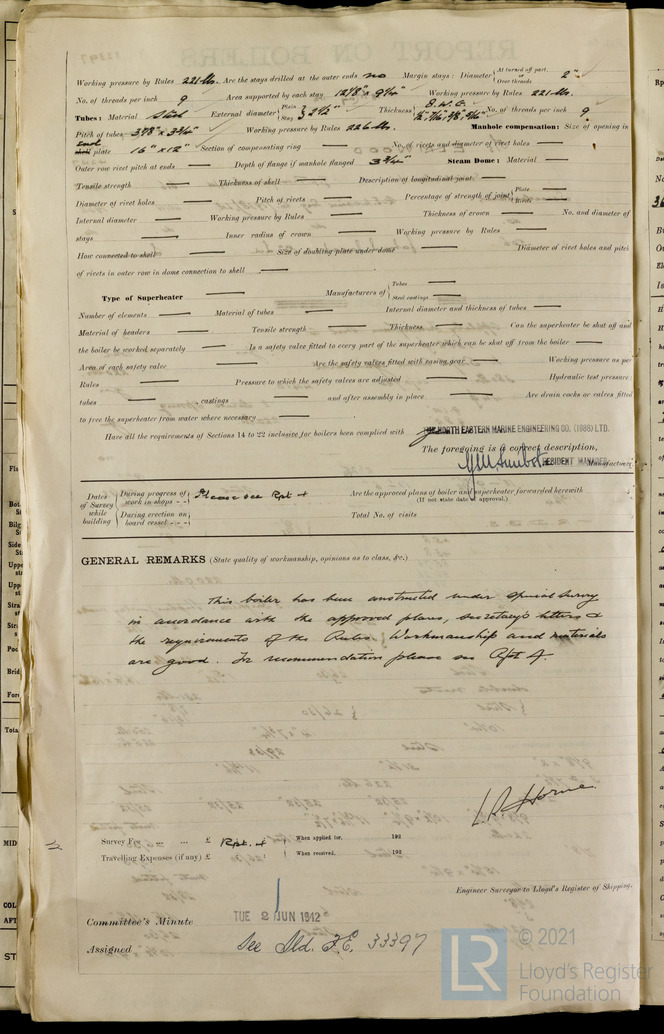 Working pressure by Rules 221 lbs. Are the stays drilled at the outer ends no Margin stays: Diameter { At turned off part, or Over threads 2"
No. of threads per inch 9 Area supported by each stay Working pressure by Rules 221 lbs.
Tubes: Material Steel External diameter { Plain Stay } 2½" Thickness { 8 W.G. No. of threads per inch 9
Pitch of tubes Working pressure by Rules 226 lbs. Manhole compensation: Size of opening in
End shell plate 16" x 12" Section of compensating ring No. of rivets and diameter of rivet holes
Outer row rivet pitch at ends Depth of flange if manhole flanged Steam Dome: Material
Tensile strength Thickness of shell Description of longitudinal joint
Diameter of rivet holes Pitch of rivets Percentage of strength of joint { Plate Rivets
Internal diameter Working pressure by Rules Thickness of crown No. and diameter of
stays Inner radius of crown Working pressure by Rules
How connected to shell Size of doubling plate under dome Diameter of rivet holes and pitch
of rivets in outer row in dome connection to shell
Type of Superheater Manufacturers of { Tubes Steel castings
Number of elements Material of tubes Internal diameter and thickness of tubes
Material of headers Tensile strength Thickness Can the superheater be shut off and
the boiler be worked separately Is a safety valve fitted to every part of the superheater which can be shut off from the boiler
Area of each safety valve Are the safety valves fitted with easing gear Working pressure as per
Rules Pressure to which the safety valves are adjusted Hydraulic test pressure:
tubes castings and after assembly in place Are drain cocks or valves fitted
to free the superheater from water where necessary
Have all the requirements of Sections 14 to 22 inclusive for boilers been complied with
THE NORTH EASTERN MARINE ENGINEERING CO. (1938) LTD.
The foregoing is a correct description,
RESIDENT MANAGER Manufacturer.
Dates of Survey while building { During progress of work in shops - - Please see Rpt 4 Are the approved plans of boiler and superheater forwarded herewith
(If not state date of approval.)
During erection on board vessel - - - Total No. of visits
GENERAL REMARKS (State quality of workmanship, opinions as to class, &c.)
This boiler has been constructed under special survey
in accordance with the approved plans, secretary's letters &
the requirements of the Rules. Workmanship and materials
are good. For recommendation please see Rpt 4.
L. R. Horne.
Survey Fee ... ... £ Rpt. 4 When applied for, 192
Travelling Expenses (if any) £ When received, 192
Engineer Surveyor to Lloyd's Register of Shipping.
Committee's Minute TUE 2 JUN 1942
Assigned See Sld. F.E. 33397
© 2021
LR Lloyd's Register
Foundation